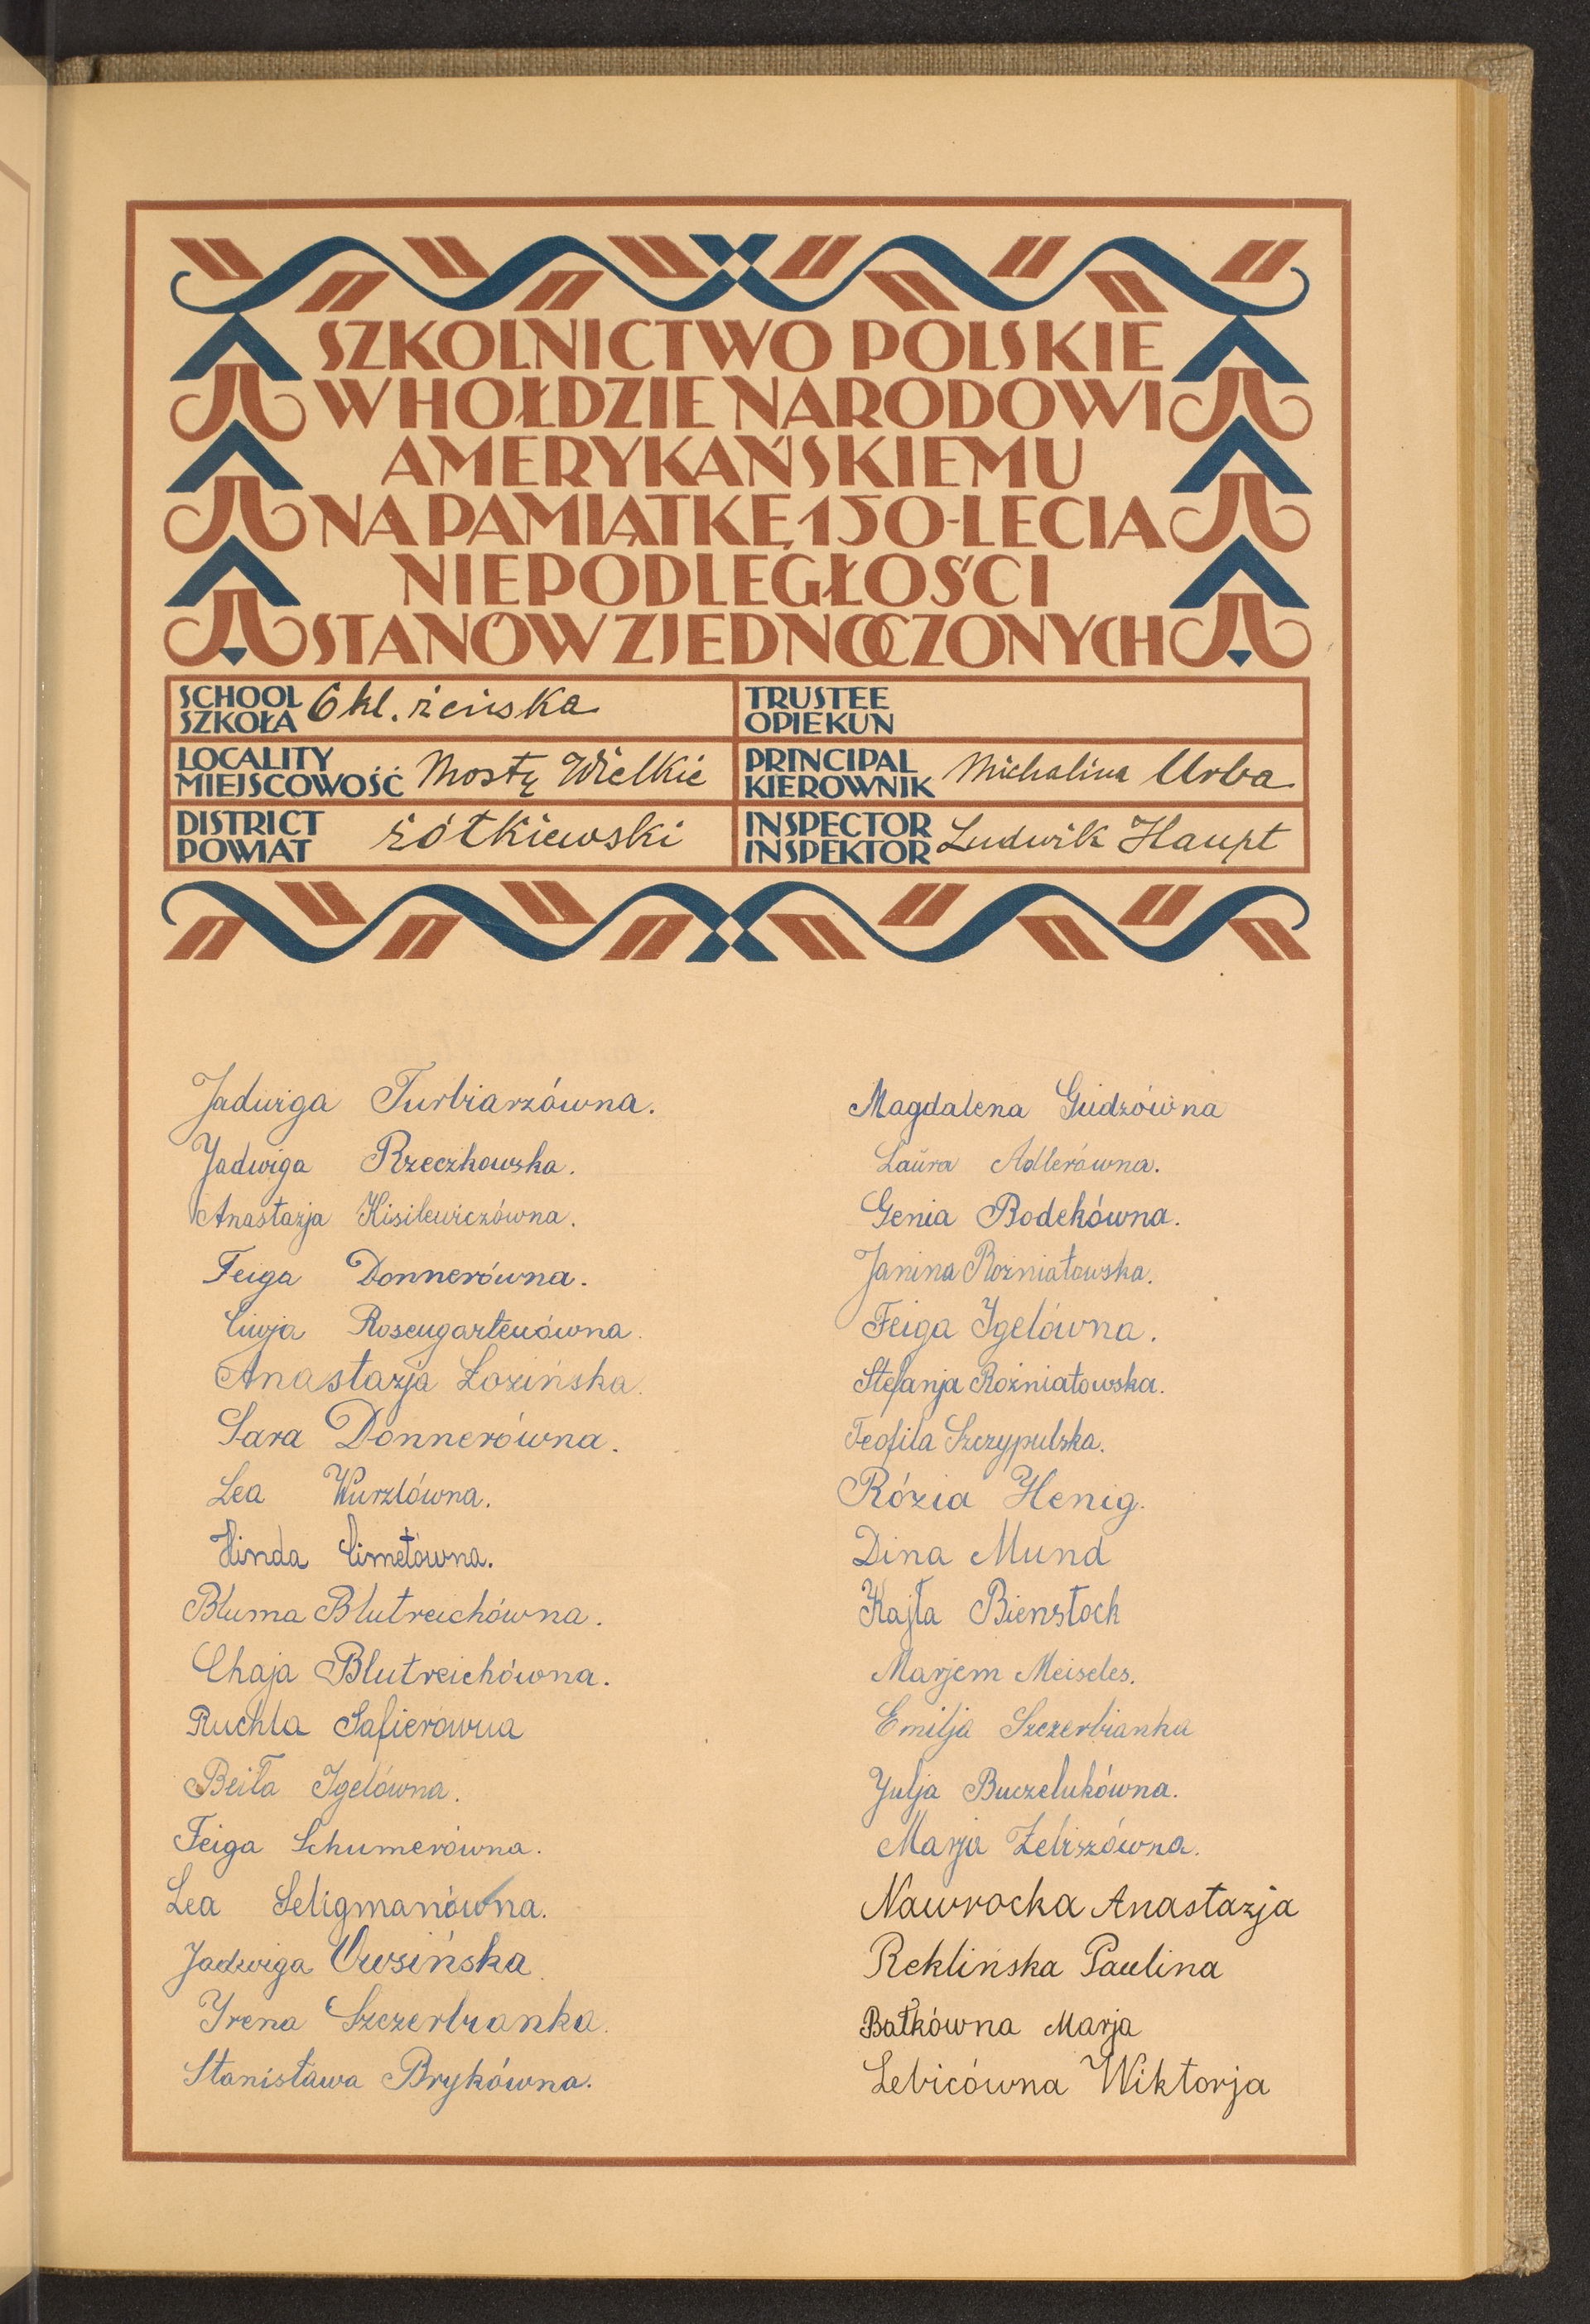 SZKOLNICTWO POLSKIE
W HOŁDZIE NARODOWI
AMERYKAŃSKIEMU
NA PAMIĄTKĘ 150-LECIA
NIEPODLEGŁOŚCI
STANÓW ZJEDNOCZONYCH
SCHOOL
SZKOŁA 6 kl. żeńska
TRUSTEE
OPIEKUN
LOCALITY
MIEJSCOWOŚĆ Mosty Wielkie
PRINCIPAL
KIEROWNIK Michalina Urba
DISTRICT
POWIAT żółkiewski
INSPECTOR
INSPEKTOR Ludwik Haupt
Jadwiga Turbiarzówna.
Jadwiga Rzeczkowska.
Anastazja Kisilewiczówna.
Feiga Donnerówna.
Ciwja Rosengartenówna.
Anastazja Łozińska.
Sara Donnerówna.
Lea Wurzlówna.
Hinda Cimetówna.
Bluma Blutreichówna.
Chaja Blutreichówna.
Ruchla Safierówna
Beila Igelówna.
Feiga Schumerówna.
Lea Seligmanówna.
Jadwiga Owsińska.
Yrena Szczerbianka.
Stanisława Brykówna.
Magdalena Gudzówna
Laura Adlerówna.
Genia Bodekówna.
Janina Rożniatowska.
Feiga Igelówna.
Stefanja Rożniatowska.
Teofila Szczypulska.
Rózia Henig.
Dina Mund
Kajla Bienstock
Marjem Meiseles.
Emilja Szczerbianka
Yulja Buczelukówna.
Marja Żebiszówna.
Nawrocka Anastazja
Reklińska Paulina
Bałkówna Marja
Lebicówna Wiktorja